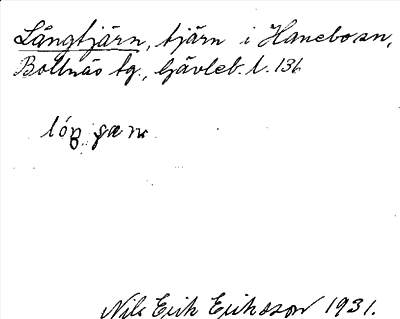 Långtjärn, tjärn i Hanebo sn,
Bollnäs tg., Gävleb. l. 136
Nils Erik Eriksson 1931.